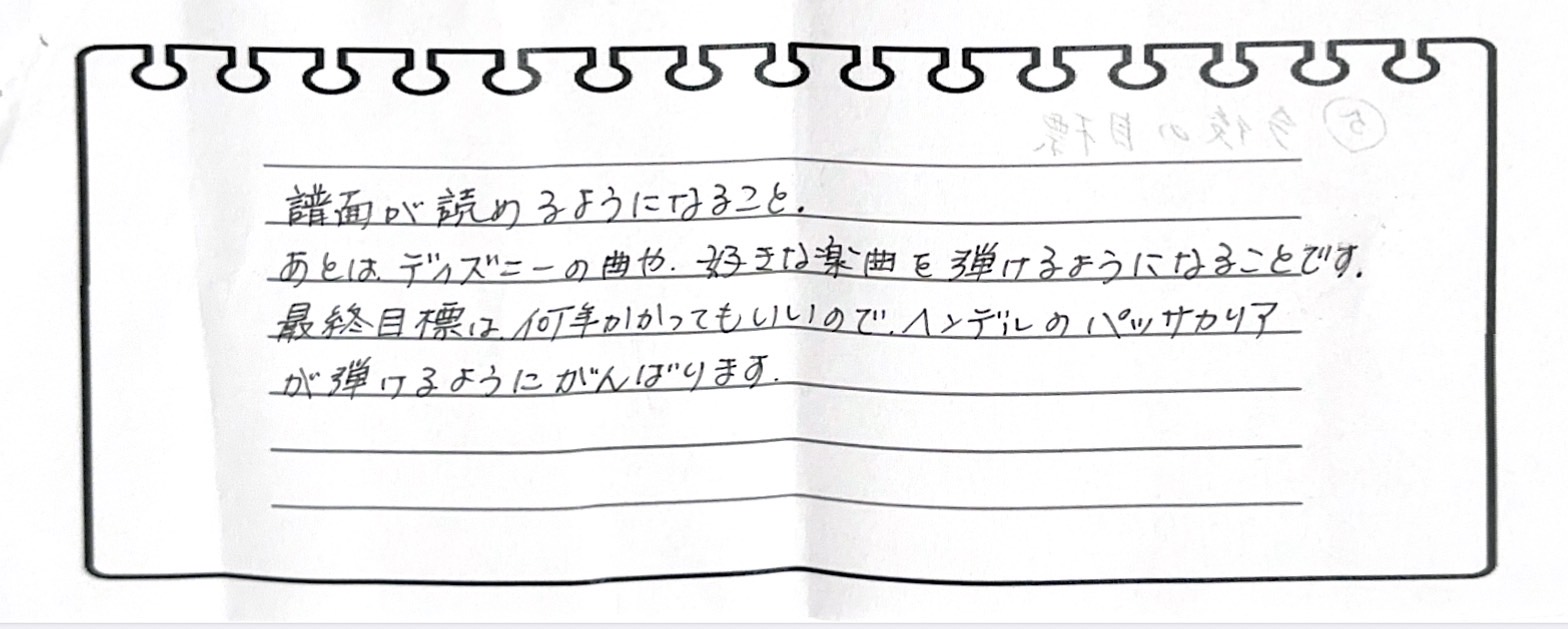 ⑤ 今後の目標
譜面が読めるようになること.
あとは、ディズニーの曲や、好きな楽曲を弾けるようになることです.
最終目標は、何年かかってもいいので、ヘンデルのパッサカリア
が弾けるようにがんばります.